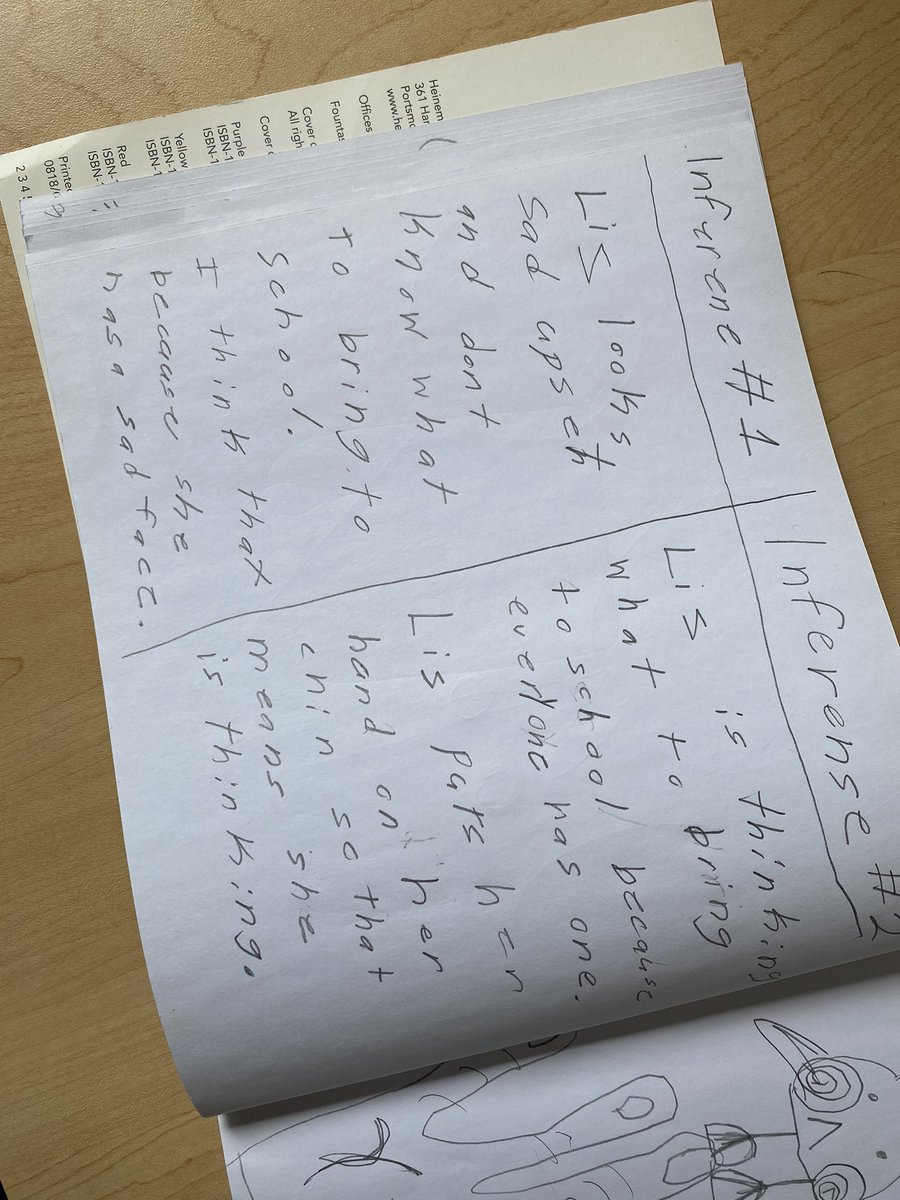 Infurene #1
Lis looks
sad upset
and dont
know what
to bring to
school.
I think that
because she
has a sad face.
Inferense #2
Lis is thinking
what to bring
to school because
everlone has one.
Lis puts her
hand on her
chin so that
means she
is thinking.
Heinem
361 Har
Portsmo
www.he
Offices
Founta
Cover
All righ
Cover
Purple
ISBN-1
ISBN-1
Yellow
ISBN-1
ISBN-1
Red
ISBN-1
ISBN-
Printe
0818/
2 3 4